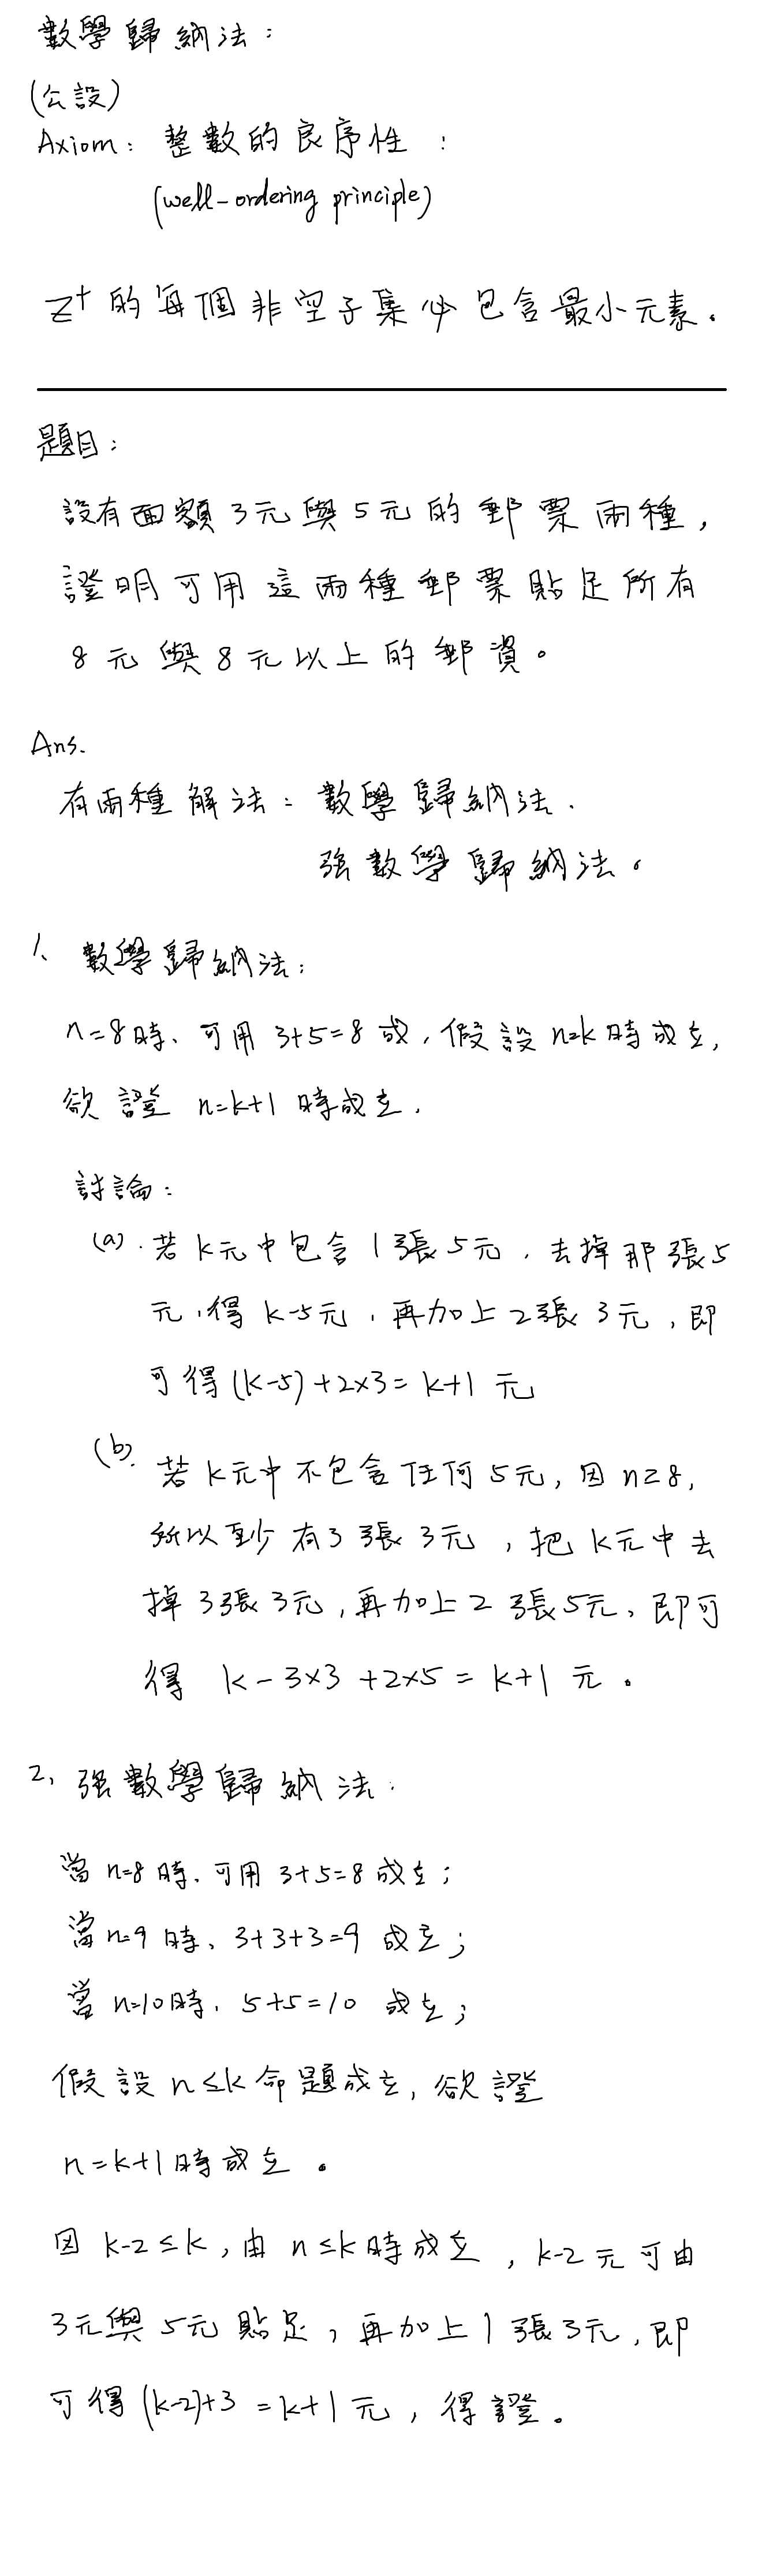 數學歸納法：
(公設)
Axiom: 整數的良序性：
(well-ordering principle)
Z⁺的每個非空子集必包含最小元素。
題目：
設有面額3元與5元的郵票兩種,
證明可用這兩種郵票貼足所有
8元與8元以上的郵資。
Ans.
有兩種解法：數學歸納法、
強數學歸納法。
1、數學歸納法：
n=8時、可用3+5=8成,假設n=k時成立,
欲證 n=k+1 時成立.
討論：
(a).若k元中包含1張5元,去掉那張5
元,得k-5元,再加上2張3元,即
可得(k-5)+2×3=k+1元
(b).若k元中不包含任何5元,因n≥8,
所以至少有3張3元,把k元中去
掉3張3元,再加上2張5元、即可
得 k-3×3+2×5=k+1元。
2、強數學歸納法：
當n=8時、可用3+5=8成立；
當n=9時、3+3+3=9成立；
當n=10時、5+5=10成立；
假設n≤k命題成立,欲證
n=k+1時成立。
因k-2≤k,由n≤k時成立,k-2元可由
3元與5元貼足,再加上1張3元,即
可得(k-2)+3=k+1元,得證。